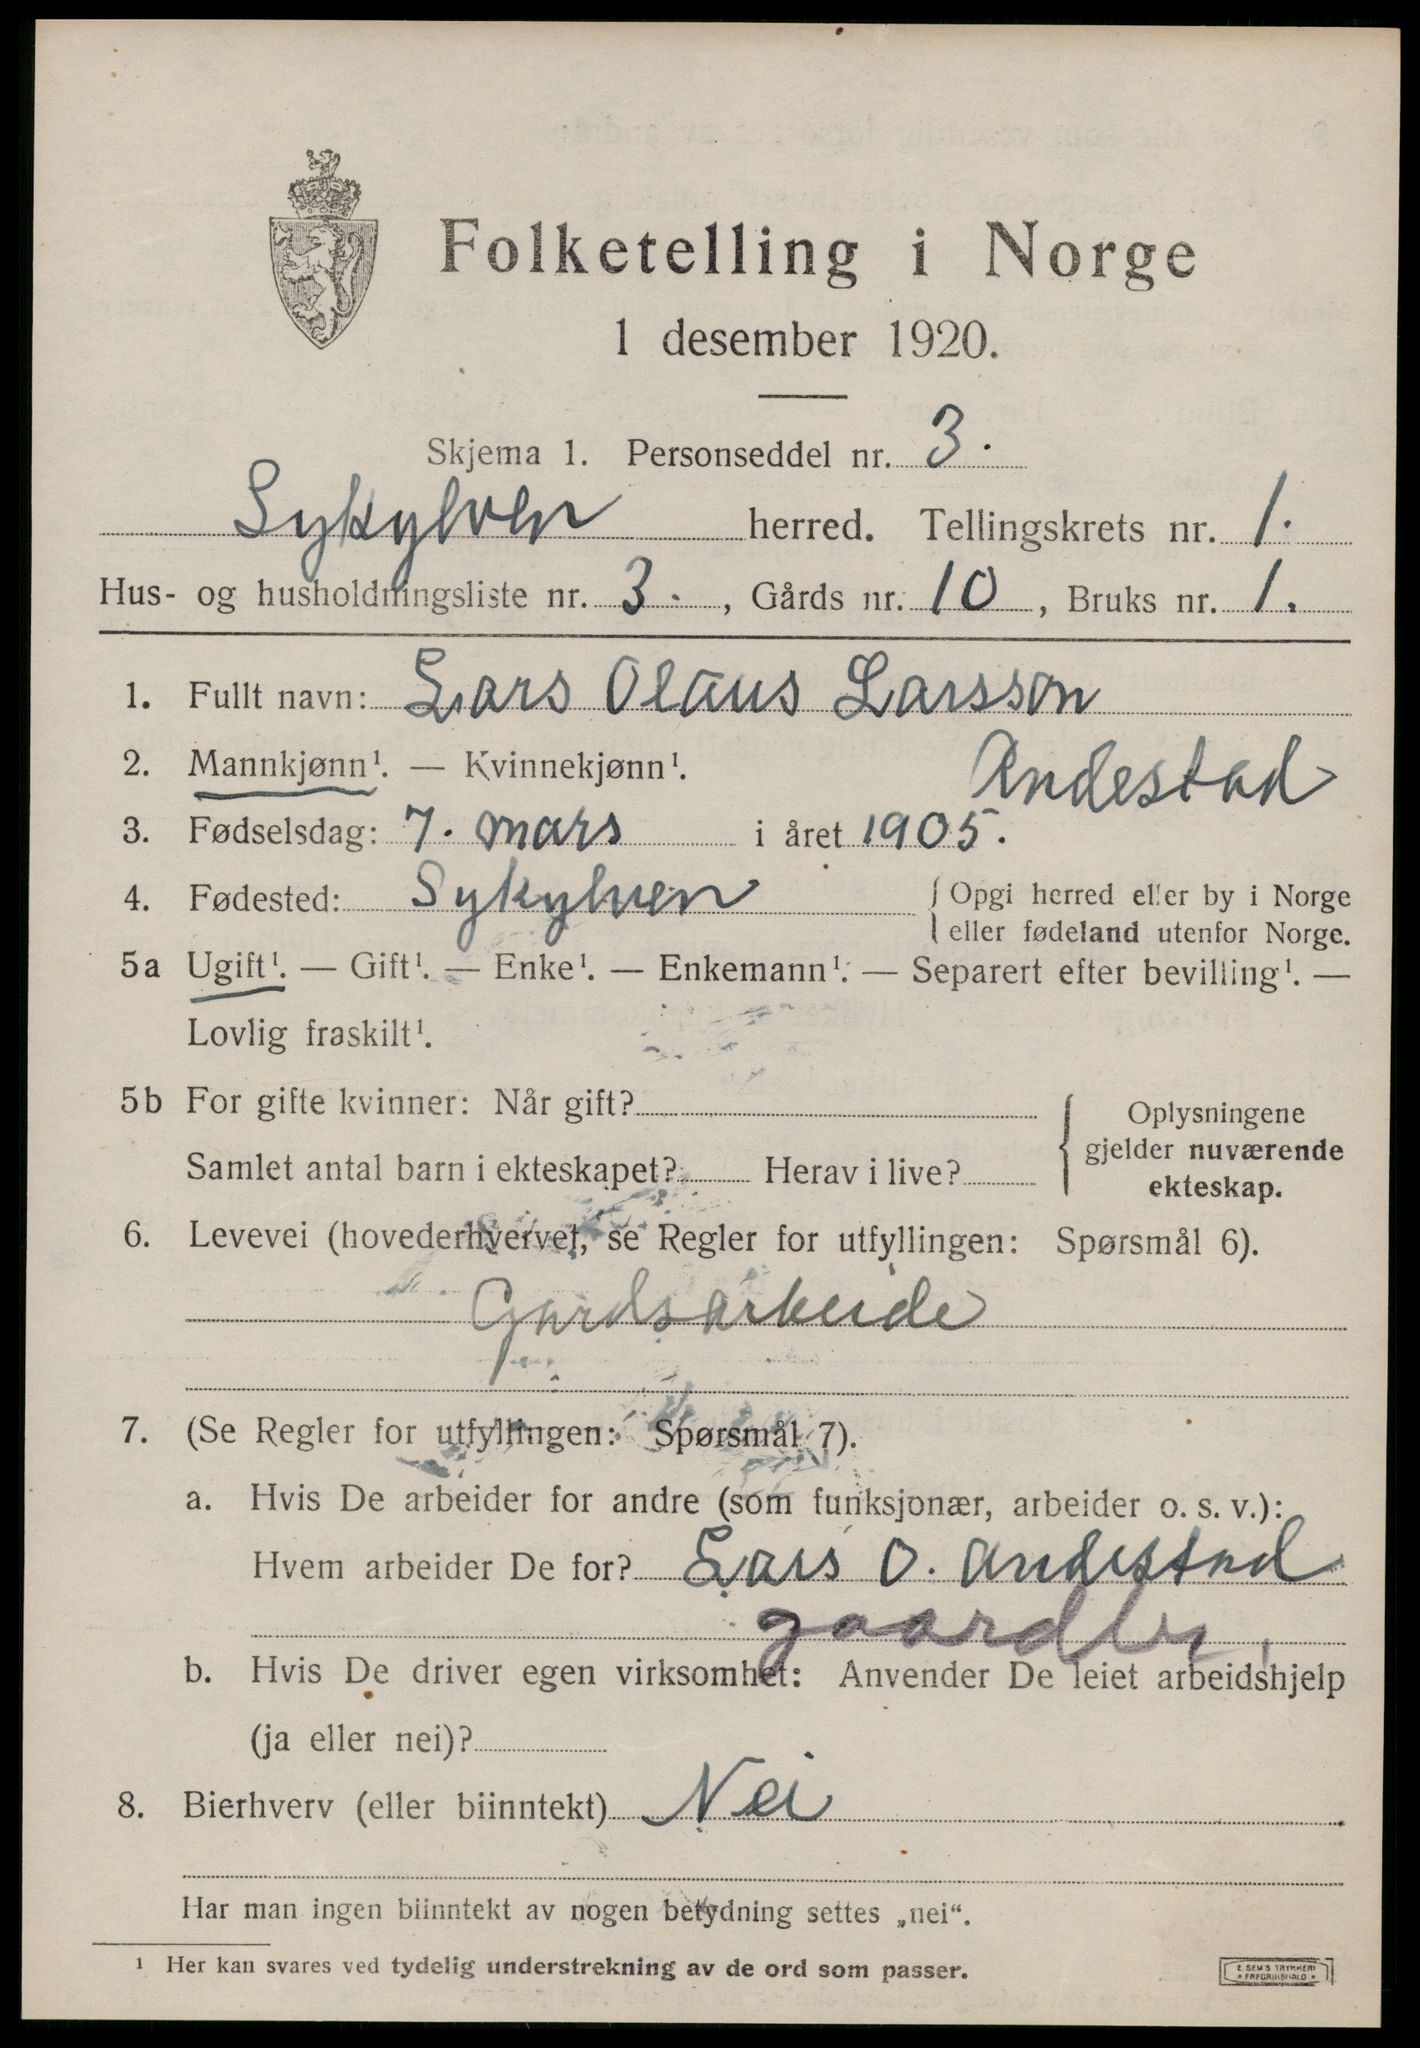 Folketelling i Norge
1 desember 1920.
Skjema 1. Personseddel nr. 3.
Sykylven herred. Tellingskrets nr. 1.
Hus- og husholdningsliste nr. 3. , Gårds nr. 10 , Bruks nr. 1.
1. Fullt navn: Lars Olaus Larsson
Andestad
2. Mannkjønn¹. — Kvinnekjønn¹.
3. Fødselsdag: 7. mars i året 1905.
4. Fødested: Sykylven { Opgi herred eller by i Norge
eller fødeland utenfor Norge.
5a Ugift¹. — Gift¹. — Enke¹. — Enkemann¹. — Separert efter bevilling¹. —
Lovlig fraskilt¹.
5b For gifte kvinner: Når gift?
Samlet antal barn i ekteskapet? Herav i live?
Oplysningene
gjelder nuværende
ekteskap.
6. Levevei (hovederhvervet, se Regler for utfyllingen: Spørsmål 6).
Gardsarbeide
7. (Se Regler for utfyllingen: Spørsmål 7).
a. Hvis De arbeider for andre (som funksjonær, arbeider o. s. v.):
Hvem arbeider De for? Lars O. Andestad
gaardbr.
b. Hvis De driver egen virksomhet: Anvender De leiet arbeidshjelp
(ja eller nei)?
8. Bierhverv (eller biinntekt) Nei
Har man ingen biinntekt av nogen betydning settes „nei“.
¹ Her kan svares ved tydelig understrekning av de ord som passer.
E. SEM'S TRYKKERI
* FREDRIKSHALD *